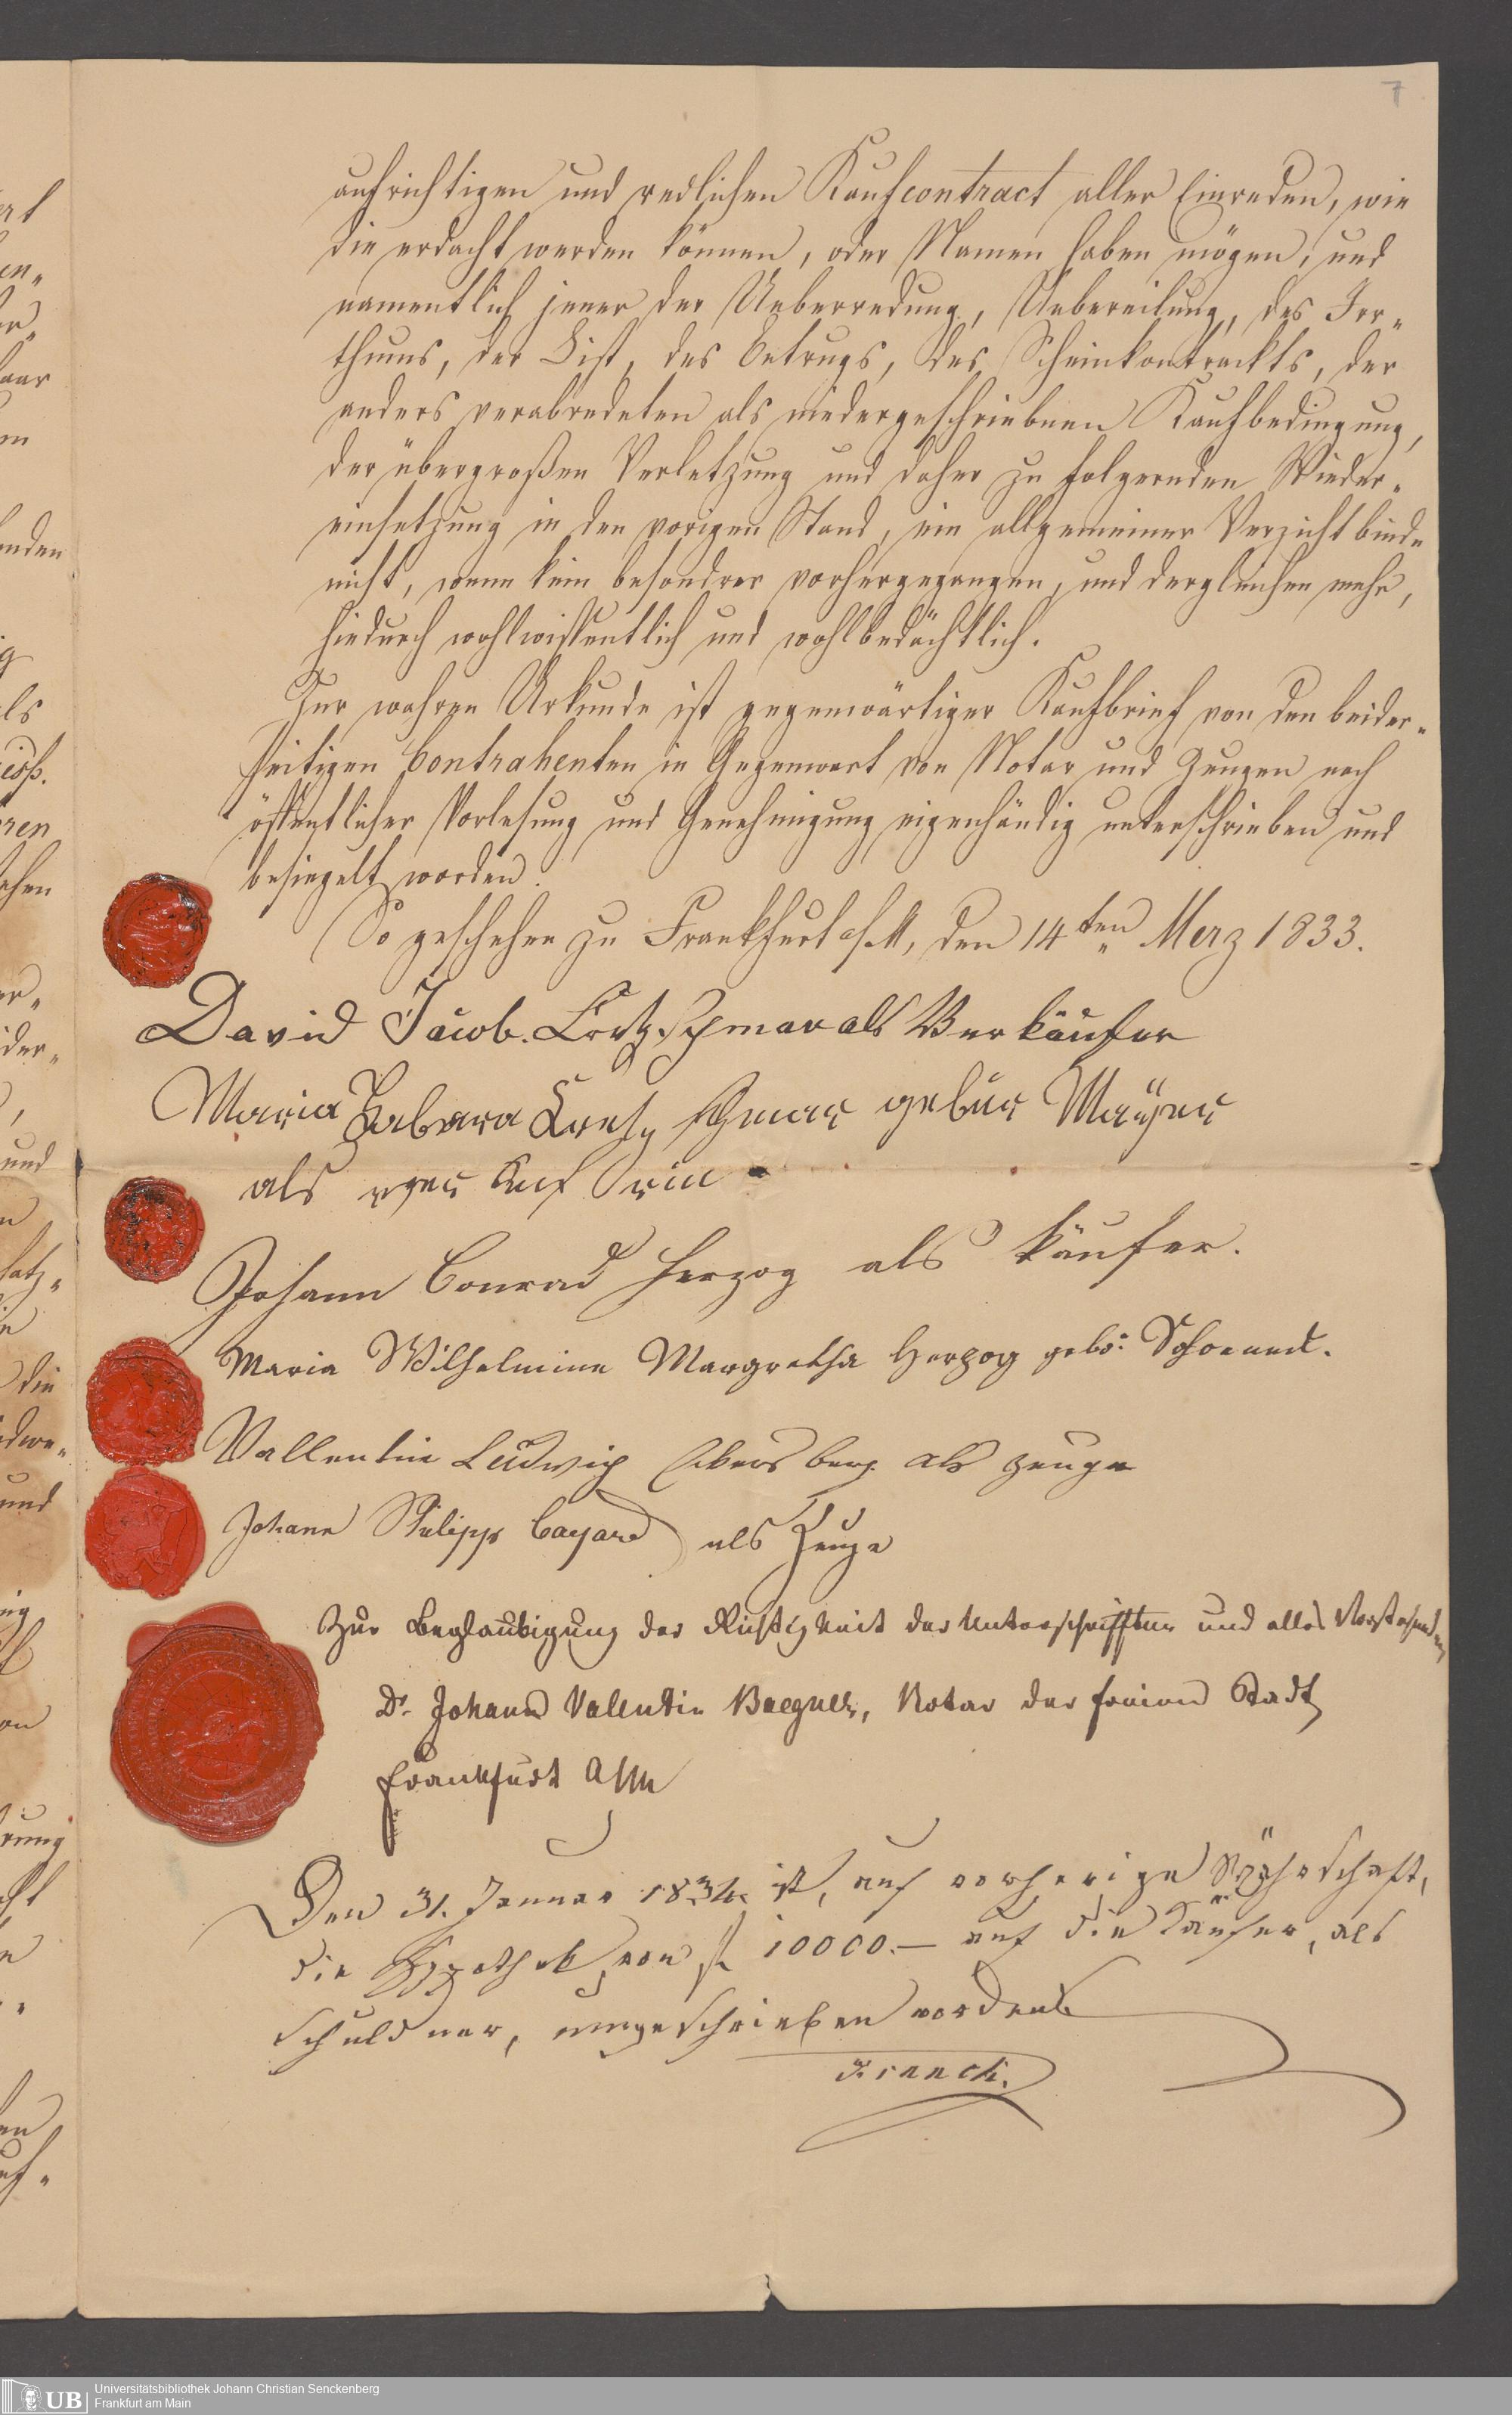 7
aufrichtigen und redlichen Kaufcontract aller Einreden, wie
die erdacht werden können, oder Namen haben mögen, und
namentlich jener der Ueberredung, Uebereilung, des Irr-
thums, der List, des Betrugs, des Scheinkontrackts, der
anders verabredeten als niedergeschriebnen Kaufbedingung,
der übergroßen Verletzung und daher zu folgernden Wieder-
einsetzung in den vorigen Stand, ein allgemeiner Verzicht binde
nicht, wenn kein besondrer vorhergegangen, und dergleichen mehr,
hiedurch wohlwissentlich und wohlbedächtlich.
Zur wahren Urkunde ist gegenwärtiger Kaufbrief von den beider-
seitigen Contrahenten in Gegenwart von Notar und Zeugen nach
öffentlicher Vorlesung und Genehmigung eigenhändig unterschrieben und
besiegelt worden.
So geschehen zu Frankfurt a/M, den 14ten Merz 1833.
David Jacob als Verkäufer
Maria Babara gebür Mayer
als
Johann Conrad Herzog als Käufer.
Maria Wilhelmine Margretha Herzog geb:
Vallentin Ludwig als Zeuge
Johann Philipp Cayard als Zeuge
Zur Beglaubigung der Richtigkeit der Unterschrifften und alles Vorstehenden
Dr. Johann Valentin Notar der freien Stadt
Frankfurt a/M
Den 31. Januar 1834 ist, auf vorherige
die Hypothek von fl 10000.— auf die Käufer, als
Schuldner, umgeschrieben worden.
Franck.
UB
Universitätsbibliothek Johann Christian Senckenberg
Frankfurt am Main